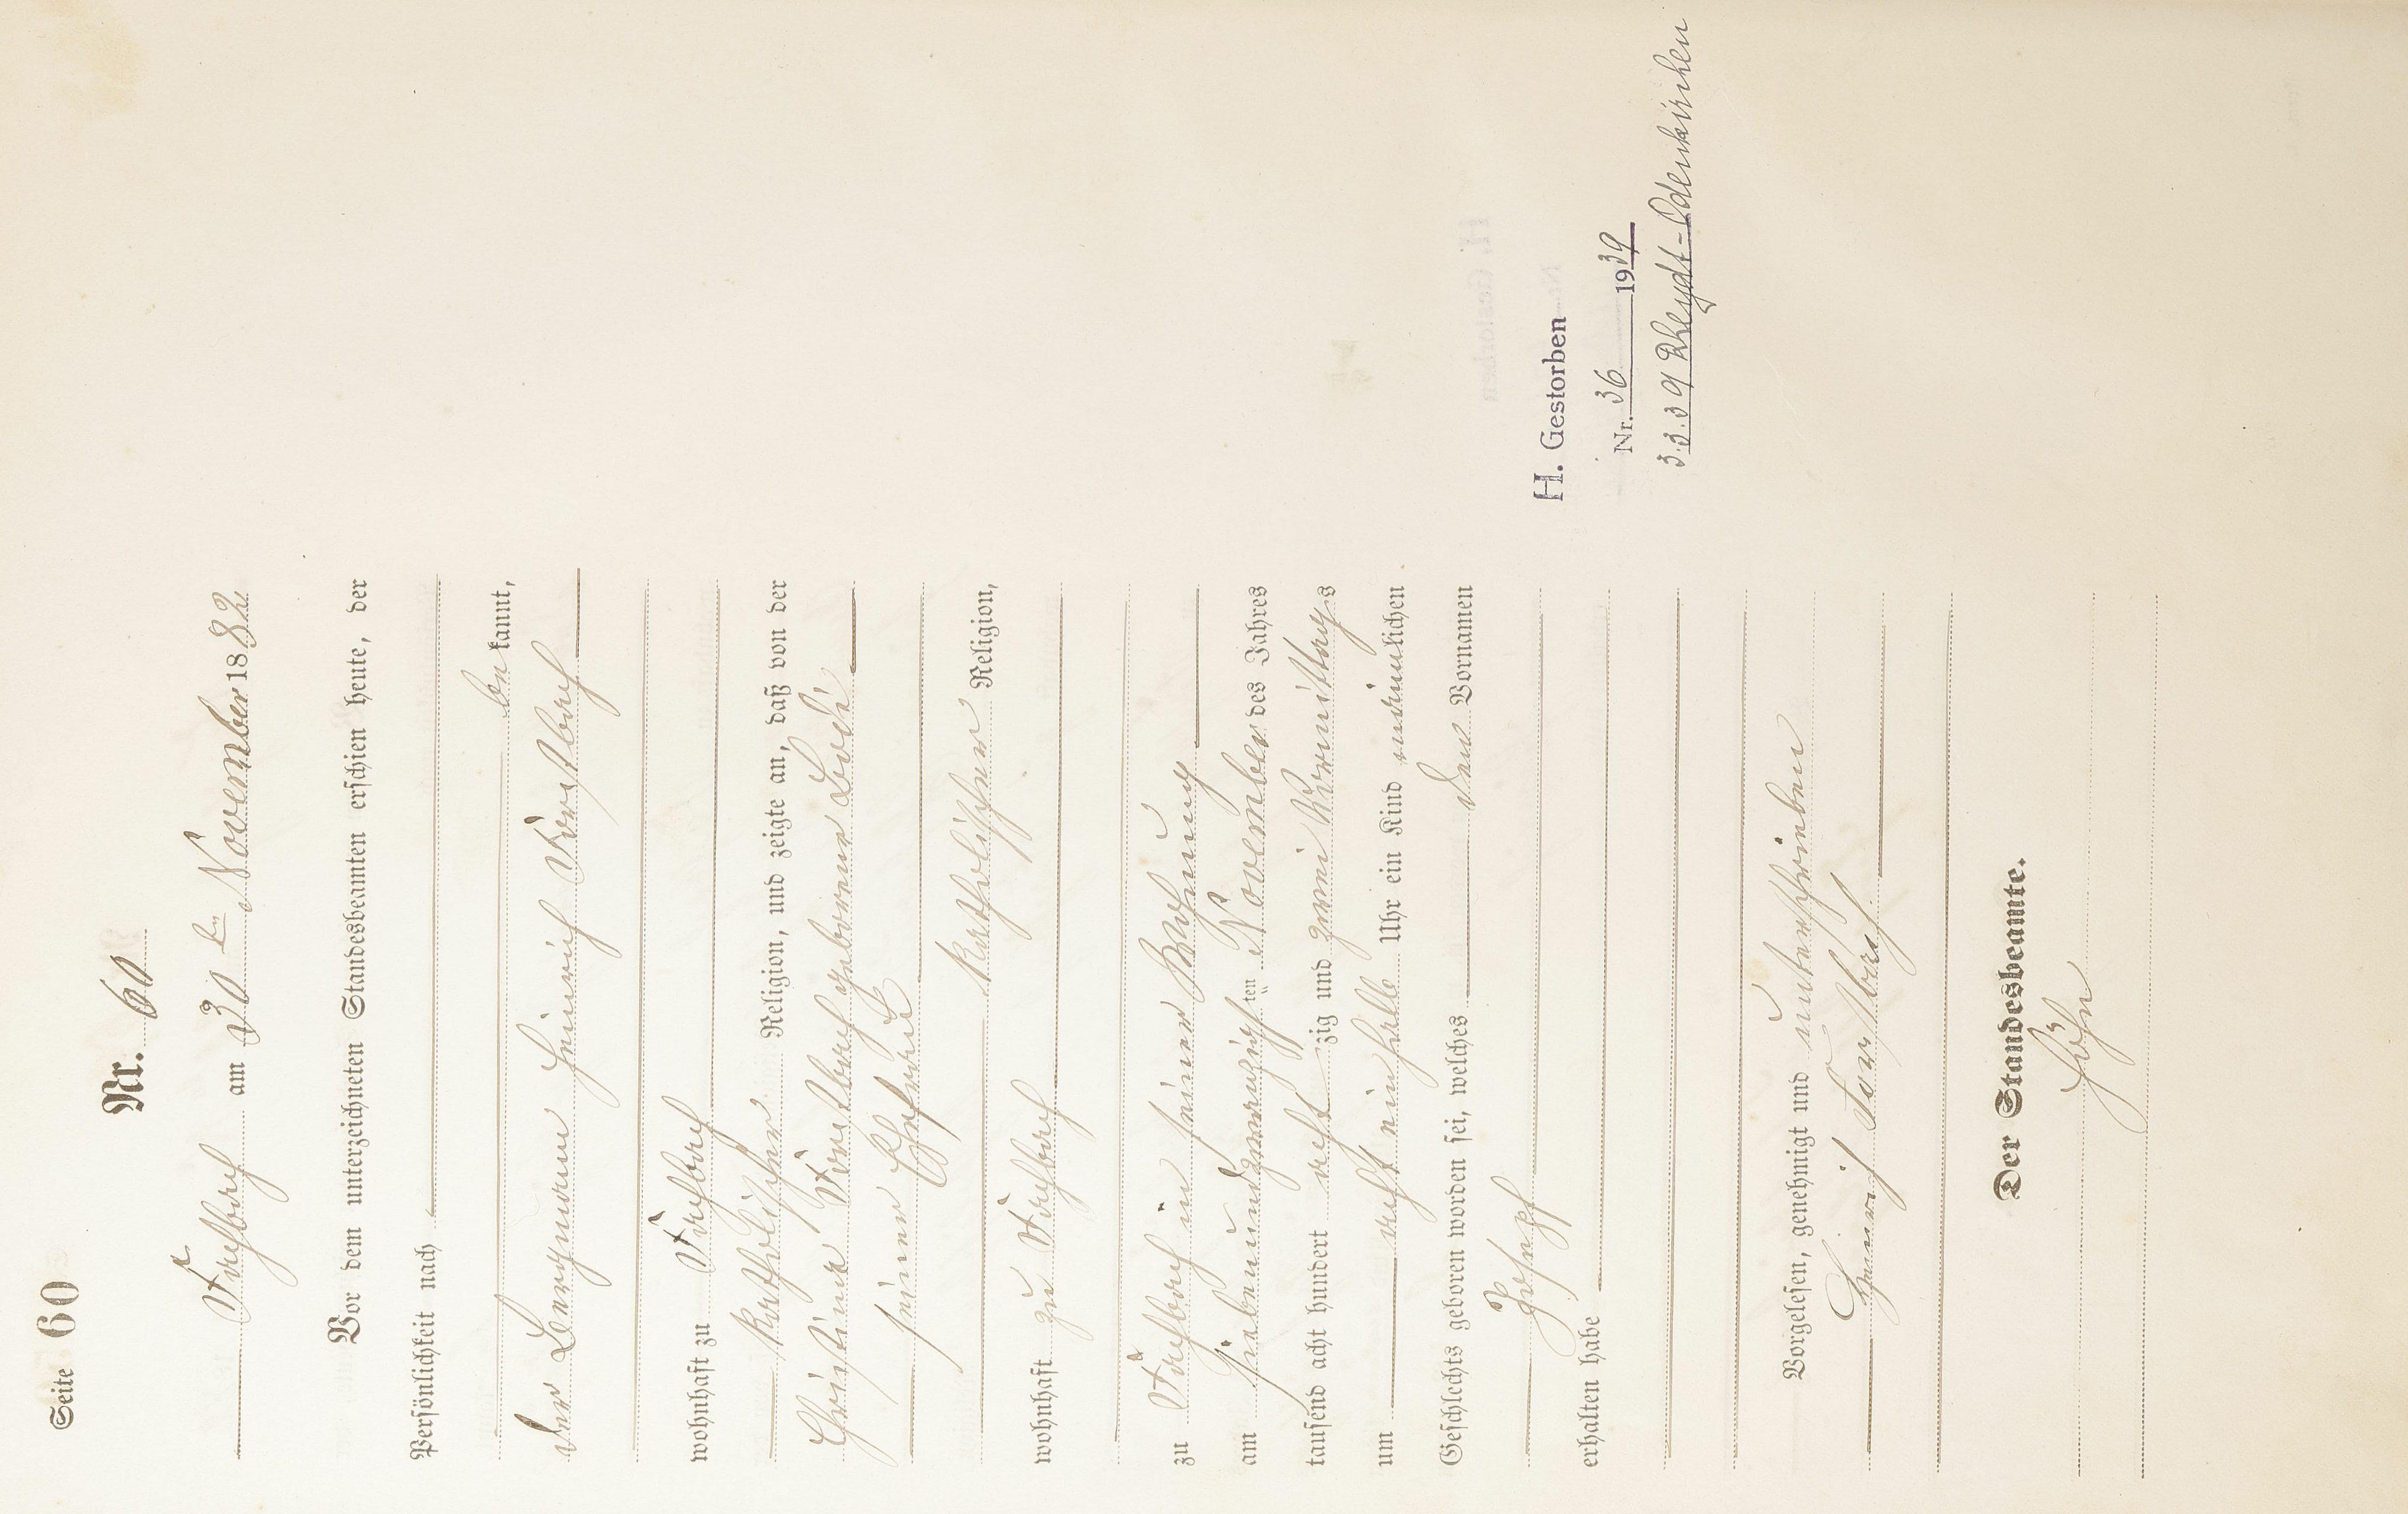 Seite 60
Nr. 60
Fischbach am 30ten November 1882
Vor dem unterzeichneten Standesbeamten erschien heute, der
Persönlichkeit nach
be kannt,
der Bergmann Heinrich Forstbach
wohnhaft zu Fischbach
katholischer Religion, und zeigte an, daß von der
Christina Forstbach geborene Bodi
seiner Ehefrau
katholischer Religion,
wohnhaft zu Fischbach
zu Fischbach in seiner Wohnung
am siebenundzwanzigsten November des Jahres
tausend acht hundert acht zig und zwei Vormittags
um acht ein halb Uhr ein Kind männlichen
Geschlechts geboren worden sei, welches den Vornamen
Joseph
erhalten habe
Vorgelesen, genehmigt und unterschrieben
Heinrich Forstbach
Der Standesbeamte.
Höhn
H. Gestorben
Nr. 36 1939
3.3.39 Rheydt-Odenkirchen